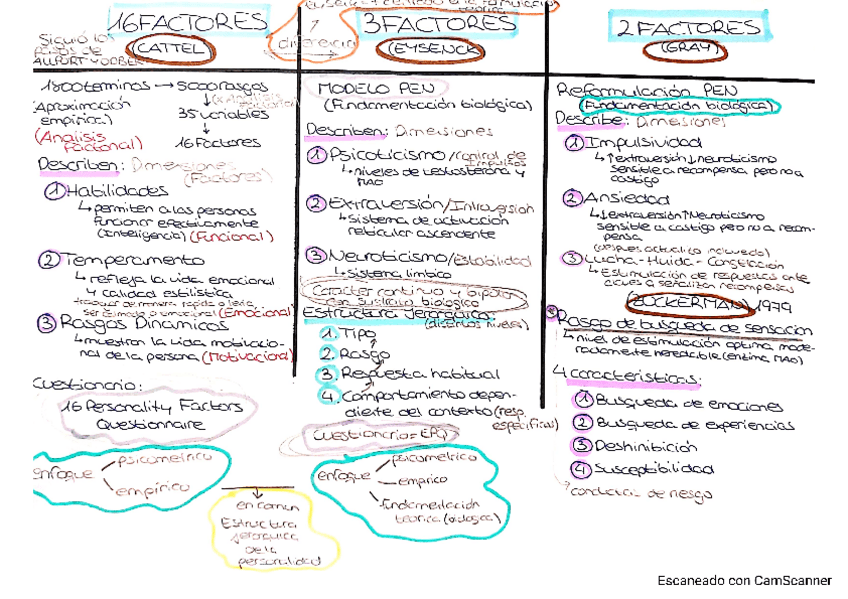 16 FACTORES
(CATTEL)
Siguió los
pasos de
ALLPORT Y ODBERT
1800 terminos → 5000 rasgos
Aproximación
empírica
(Analisis
Factorial)
35 variables
16 Factores
Describen: Dimensiones
(Factores)
1 Habilidades
↳ permiten a las personas
funcionar efectivamente
(Inteligencia) (Funcional)
2 Temperamento
↳ refleja la vida emocional
y calidad estilística
ser calmado o emocional (Emocional)
3 Rasgos Dinamicos
↳ muestran la vida motivacio-
nal de la persona (Motivacional)
Cuestionario:
16 Personality Factors
Questionnaire
enfoque
psicometrico
empírico
en comun
Estructura
jerarquica
de la
personalidad
diferencia
3 FACTORES
(EYSENCK)
MODELO PEN
(Fundamentación biológica)
Describen: Dimensiones
1 Psicoticismo/control de
impulsos
↳ niveles de testosterona y
MAO
2 Extraversión/Introversión
↳ Sistema de activación
reticular ascendente
3 Neuroticismo/Estabilidad
↳ sistema limbico
Caracter continuo y bipolar
con sustrato biologico
Estructura Jerárquica:
(distintos niveles)
1. Tipo
2. Rasgo
3. Respuesta habitual
4. Comportamiento depen-
diente del contexto (resp.
especificas)
Cuestionario = EPQ
enfoque
psicometrico
empirico
fundamentación
teorica (biologica)
2 FACTORES
(GRAY)
Reformulación PEN
(Fundamentación biológica)
Describe: Dimensiones
1 Impulsividad
↳ ↑extraversión ↓neuroticismo
sensible a recompensa pero no a
castigo
2 Ansiedad
↳ ↓extraversión ↑Neuroticismo
sensible a castigo pero no a recom-
pensa
3 Lucha-Huida-Congelación
↳ Estimulación de respuestas ante
(ZUCKERMAN) 1979
Rasgo de busqueda de sensación
↳ nivel de estimulación optima mode-
radamente heredable (enzima MAO)
4 características:
1 Busqueda de emociones
2 Busqueda de experiencias
3 Deshinibición
4 Susceptibilidad
→ conductas de riesgo
Escaneado con CamScanner